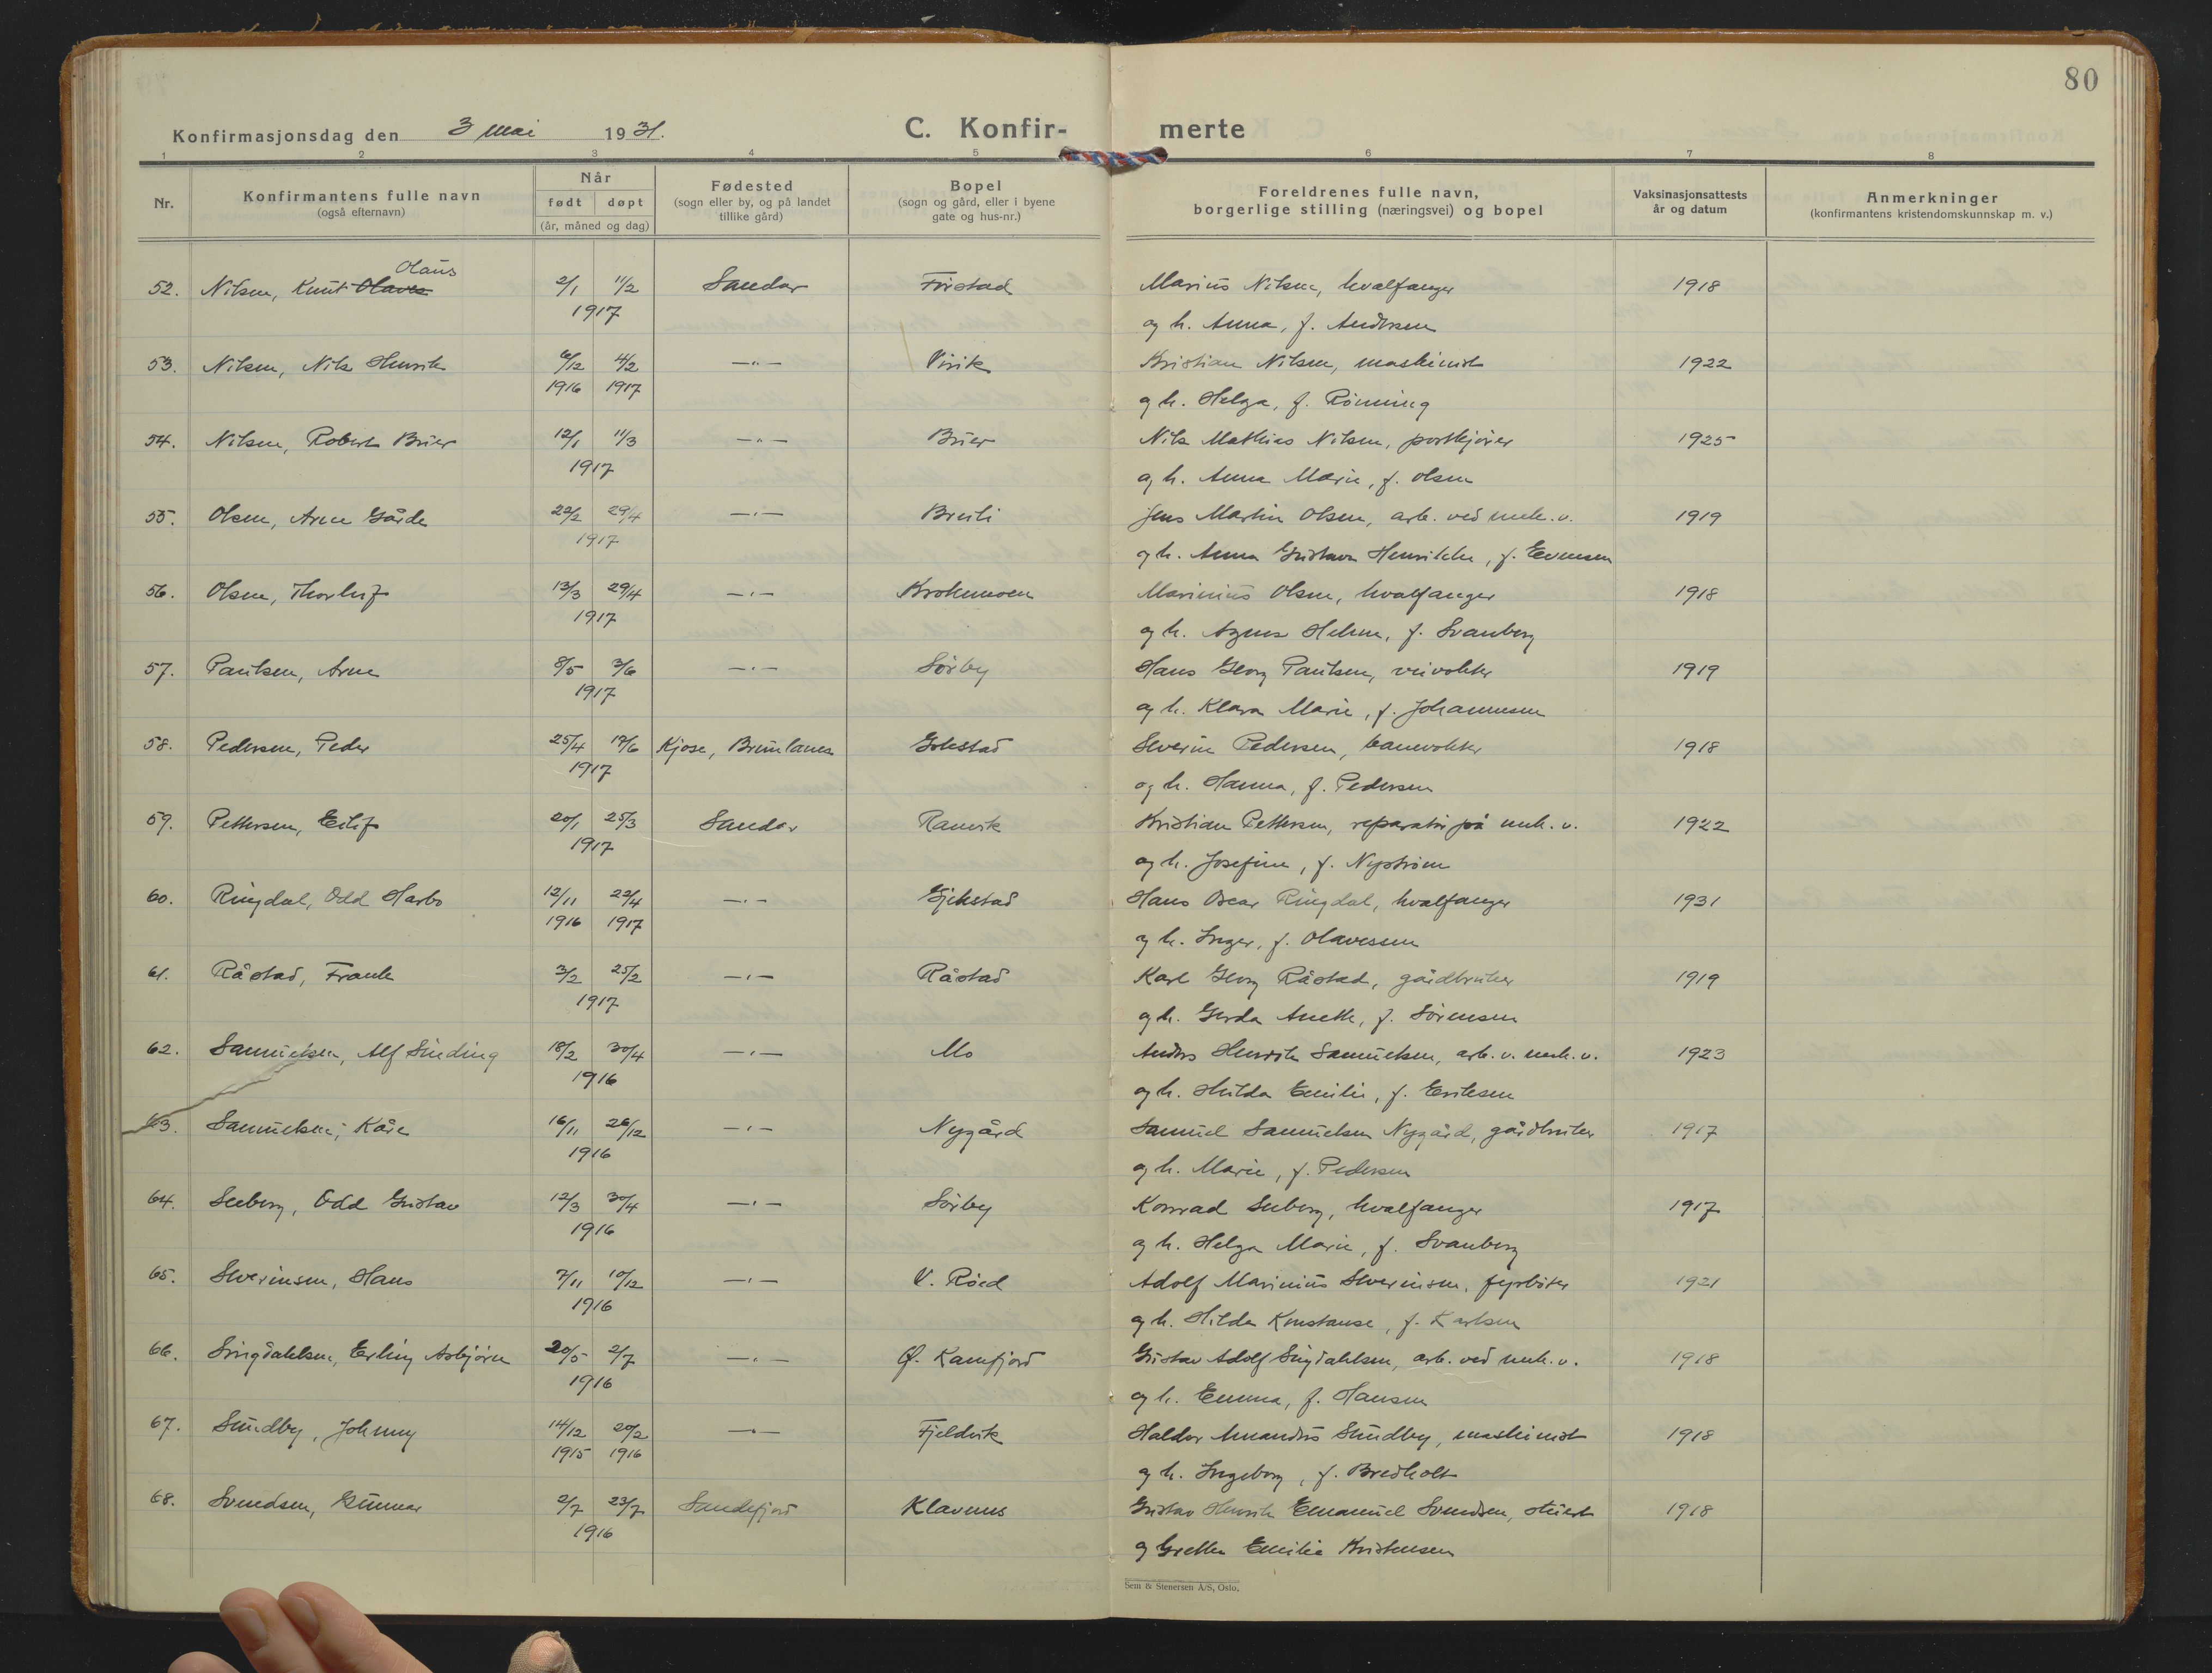 80
Konfirmasjonsdag den 3 mai 1931.
C. Konfir- merte
1 2 3 4 5 6 7 8
Nr.
Konfirmantens fulle navn
(også efternavn)
Når
født døpt
(år, måned og dag)
Fødested
(sogn eller by, og på landet
tillike gård)
Bopel
(sogn og gård, eller i byene
gate og hus-nr.)
Foreldrenes fulle navn,
borgerlige stilling (næringsvei) og bopel
Vaksinasjonsattests
år og datum
Anmerkninger
(konfirmantens kristendomskunnskap m. v.)
Olaus
52. Nilsen, Knut Olaves 2/1 11/2 Sandar Firstad Marius Nilsen, hvalfanger 1918
1917 og h. Anna, f. Andersen
53. Nilsen, Nils Henrik 6/12 4/2 —"— Virik Kristian Nilsen, maskinist 1922
1916 1917 og h. Helga, f. Rönning
54. Nilsen, Robert Brier 12/1 11/3 —"— Brier Nils Mathias Nilsen, postkjører 1925
1917 og h. Anna Marie, f. Olsen
55. Olsen, Arne Gårde 22/2 29/4 —"— Breili Jens Martin Olsen, arb. ved mek. v. 1919
1917 og h. Anna Gustava Henrikke, f. Evensen
56. Olsen, Thorleif 13/3 29/4 —"— Krokemoen Marinius Olsen, hvalfanger 1918
1917 og h. Agnes Helene, f. Svanberg
57. Paulsen, Arne 8/5 3/6 —"— Sörby Hans Georg Paulsen, veivokter 1919
1917 og h. Klara Marie, f. Johannesen
58. Pedersen, Peder 25/4 17/6 Kjose, Brunlanes Gokstad Severin Pedersen, banevokter 1918
1917 og h. Hanna, f. Pedersen
59. Pettersen, Eilif 20/1 25/3 Sandar Ranvik Kristian Pettersen, reparatör på mek. v. 1922
1917 og h. Josefine, f. Nyström
60. Ringdal, Odd Harbo 12/11 22/4 —"— Gjekstad Hans Oscar Ringdal, hvalfanger 1931
1916 1917 og h. Inger, f. Olavesen
61. Råstad, Frank 3/2 25/2 —"— Råstad Karl Georg Råstad, gårdbruker 1919
1917 og h. Gerda Anette, f. Sörensen
62. Samuelsen, Alf Sinding 18/2 30/4 —"— Mo Anders Henrik Samuelsen, arb. v. mek. v. 1923
1916 og h. Hilda Emilie, f. Eriksen
63. Samuelsen, Kåre 16/11 26/12 —"— Nygård Samuel Samuelsen Nygård, gårdbruker 1917
1916 og h. Marie, f. Pedersen
64. Seeberg, Odd Gustav 12/3 30/4 —"— Sörby Konrad Seeberg, hvalfanger 1917
1916 og h. Helga Marie, f. Svanberg
65. Severinsen, Hans 7/11 10/12 —"— V. Röed Adolf Marinius Severinsen, fyrböter 1921
1916 og h. Hilda Konstanse, f. Karlsen
66. Singdahlsen, Erling Asbjörn 20/5 2/7 —"— Ø. Kamfjord Gustav Adolf Singdahlsen, arb. ved mek. v. 1918
1916 og h. Emma, f. Hansen
67. Sundby, Johnny 14/12 20/2 —"— Fjeldvik Haldor Amandus Sundby, maskinist 1918
1915 1916 og h. Ingeborg, f. Bredholt
68. Svendsen, Gunnar 2/7 23/7 Sandefjord Klavenes Gustav Henrik Emanuel Svendsen, stuert 1918
1916 og Grethe Emilie Kristensen
Sem & Stenersen A/S, Oslo.